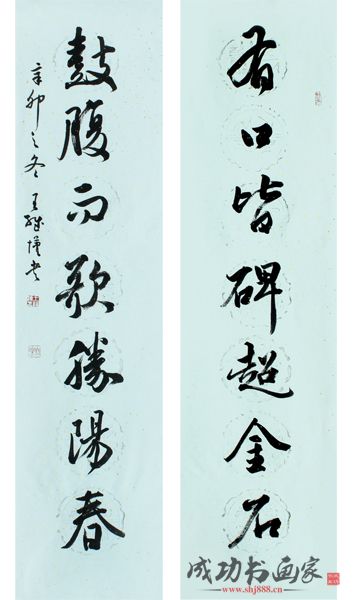 有口皆碑超金石
鼓腹而歌勝陽春
辛卯之冬
成功书画家
www.shj888.cn